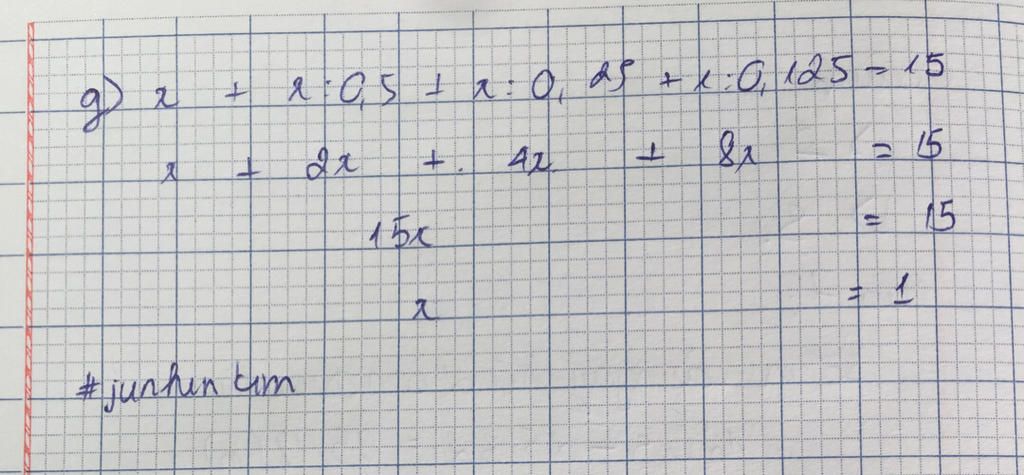 g) x + x : 0,5 + x : 0,25 + x : 0,125 = 15
x + 2x + 4x + 8x = 15
15x = 15
x = 1
#junhun kim